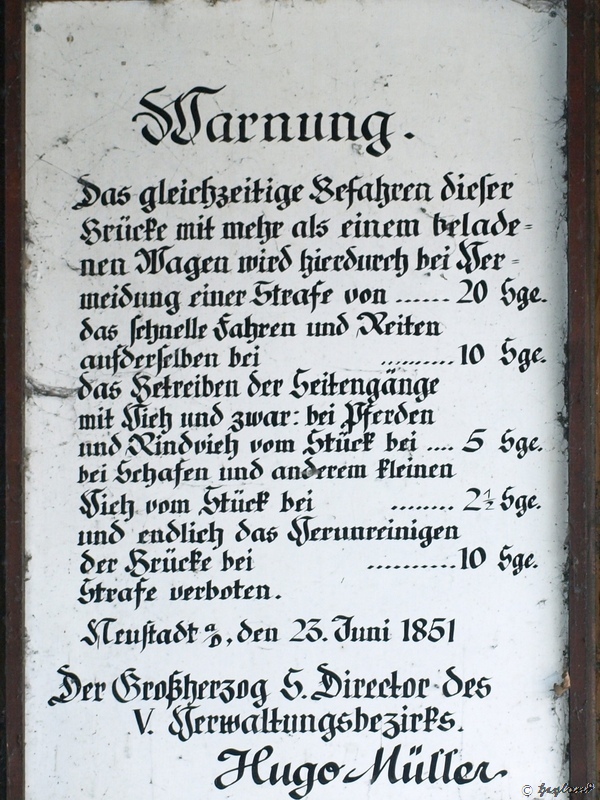 Warnung.
Das gleichzeitige Befahren dieser
Brücke mit mehr als einem belade=
nen Wagen wird hierdurch bei Ver=
meidung einer Strafe von ...... 20 Sge.
das schnelle Fahren und Reiten
aufderselben bei .......... 10 Sge.
das Betreiben der Seitengänge
mit Vieh und zwar: bei Pferden
und Rindvieh vom Stück bei .... 5 Sge.
bei Schafen und anderem kleinen
Vieh vom Stück bei ........ 2½ Sge.
und endlich das Verunreinigen
der Brücke bei ........... 10 Sge.
Strafe verboten.
Neustadt a/D, den 23. Juni 1851
Der Großherzog S. Director des
V. Verwaltungsbezirks.
Hugo Müller